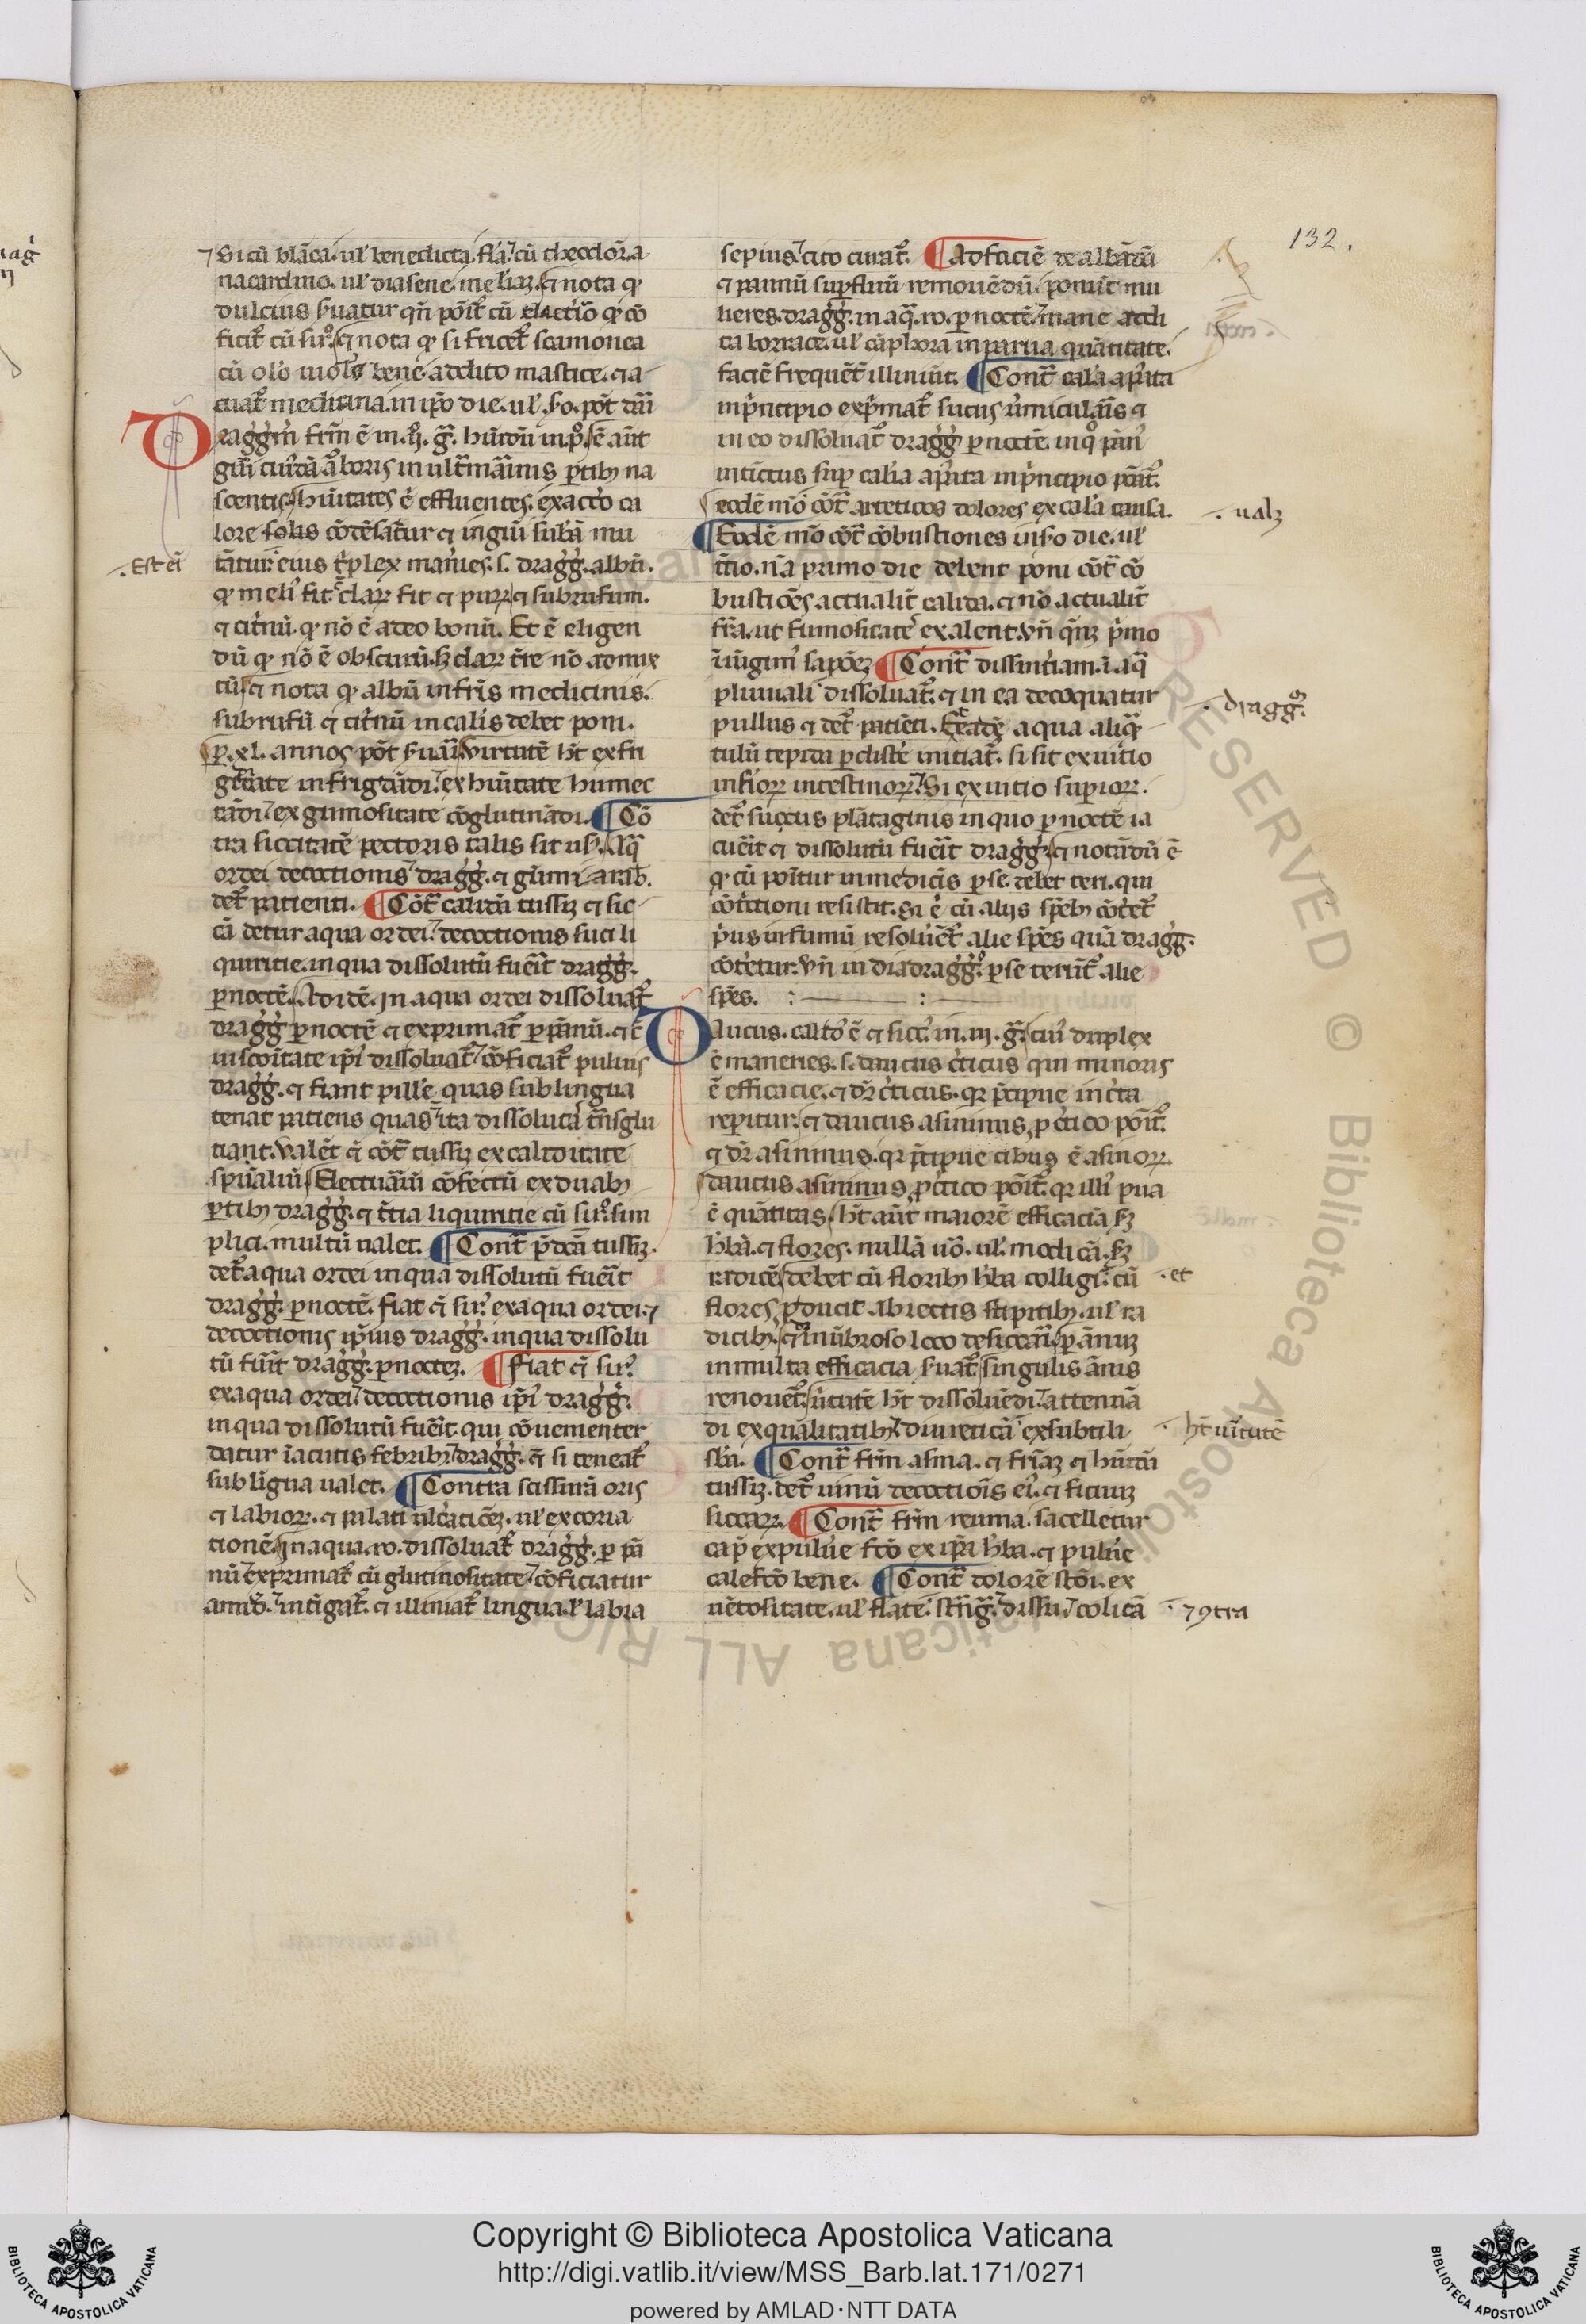 132.
⁊ Si cū blāca. ul' benedicta. fla. cū theodor. a
nacardino. ul' diasene. meliaz. ⁊ nota qͥ
dulcius ẜuatur qn̄ pōit᷑ cū electrio qͥ cō
ficit᷑ cū sir. ⁊ nota qͥ si fricet᷑ scamonea
cū olo uiole bene addito mastice.
cuat᷑ medicina. in ipo die. ul' ẜo. pōt dari
Draggm̄ frm ē in. ij. g. hūidū in p. ē aūt
scentis. hūitates ē effluentes. exactō ca
lore solis cōdēsātur ⁊ in gūi subā mu
.Est ei
tātur. eius tplex manies. s. dragg. albū.
qͥ meli fit. clar fit ⁊ pur ⁊ subrufum.
⁊ citnū. qͥ nō ē adeo bonū. Et ē eligen
dū qͥ nō ē obscurū. sꝫ clar tre nō admix
tū ⁊ nota qͥ albū in fris medicinis.
subrufū ⁊ citnū in calis debet poni.
p. xl. annos pōt ẜuari. virtutē ht ex fri
gitate infrigdādi. ex hūitate humec
tādi ex gumositate cōglutinādi. ¶ Cō
tra siccitatē pectoris talis sit us. Aq
ordei decoctionis dragg. ⁊ gumi arab.
det᷑ patienti. ¶ Cōt calidā tussiz ⁊ sic
cā detur aqua ordei. decoctionis suci li
quiritie. in qua dissolutū fueit dragg.
p noctē. Ad idē. in aqua ordei dissoluat᷑
dragg p noctē ⁊ exprimat᷑ p pānū. ⁊ i
uiscoitate ipi dissoluat᷑ cōficiat᷑ puluis
dragg. ⁊ fiant pille. quas sub lingua
tenat patiens quas ita dissoluta tnsglu
tiant. valet ⁊ cōt tussiz ex caliditate
spūaliū. Electuariū cōfectū ex duab
ptib dragg. ⁊ ttia liquiritie cū sir. sim
plici. multū ualet. ¶ Cont pdcā tussiz.
det᷑ aqua ordei in qua dissolutū fueit
dragg. p noctē. fiat ⁊ sir. ex aqua ordei. ⁊
decoctionis ipius dragg. in qua dissolu
tū fuit dragg. p noctez. ¶ Fiat ⁊ sir.
ex aqua ordei. decoctionis ipi dragg.
in qua dissolutū fueit. qui cōuementer
datur ī acutis febrib. dragg. ⁊ si teneat᷑
sub līgua ualet. ¶ Contra scissurā oris
⁊ labior. ⁊ palati ulcatioēz. ul' excoria
tionē. in aqua. ro. dissoluat᷑ dragg. p pā
nū exprimat᷑ cū glutinositate. cōficiatur
amid. intigat᷑. ⁊ illiniat᷑ lingua. ul' labia
sepius. cito curat᷑. ¶ Ad faciē dealbādā
⁊ pannū supfluū remouēdū. ponūt mu
lieres. dragg. in aq. ro. p noctē. mane addi
ta borrace. ul' cāphora in parua quātitate.
faciē frequēt illiniūt. ¶ Cont cala apata
in pncipio expmat᷑ sucus umicularis ⁊
in eo dissoluat᷑ dragg p noctē. in qͦ pān
intictus sup calia apata in pncipio pōat᷑.
eodē mō cōt arteticos dolores ex cala causa.
. ualꝫ
¶ Eodē mō cōt cōbustiones in ẜo die. ul'
ttio. nā primo die debent poni cōt cō
bustiōes actualit calida. ⁊ nō actualit
fria. ut fumositate exalent. vn̄ qnꝫ pmo
ūūgim sapōeꝫ ¶ Cont dissintiam. ī aq
pluuiali dissoluat᷑. ⁊ in ea decoquatur
. dragg.
pullus ⁊ det᷑ patiēti. Ex eadē aqua aliq
tulū tepida p clistē iniciat᷑. si sit ex uitio
inferior intestinor. Si ex uitio superior.
det᷑ succus plātaginis in quo p noctē ia
cueit ⁊ dissolutū fueit dragg. ⁊ notādū ē
qͥ cū ponitur in medicis p se. debet teri. qui
cōtritioni resistit. Si ē cū aliis spēb cōtet᷑
pus in fumū resoluet᷑ alie spēs quā dragg.
cōtetur. vn̄ in diadragg. p se terūt᷑ alie
spēs.
Daucus. cald ē ⁊ sicc. in. iij. g. cui duplex
ē maneries. s. daucus cticus qui minoris
ē efficacie. ⁊ dr cticus. qr pcipue in cta
repitur. ⁊ daucus asininus, p ctico pōit᷑.
⁊ dr asininus. qr pcipue cibus ē asinor.
daucus asininus p ctico pōit᷑. qr illi pua
ē quātitas. ht aūt maiorē efficaciā sꝫ
hbā. ⁊ flores. nullā uō. ul' modicā. sꝫ
radicē. debet cū florib hba colligi. cū
. et
flores pducit abiectis stipitib. ul' ra
dicib. ⁊ in ūbroso loco desiccari. p ānuꝫ
in multa efficacia ẜuat᷑. singulis ānis
renouet᷑. ututē ht dissoluēdi. attenuā
di ex qualitatib. diureticā ex subtili
. ht uirtutē
sba. ¶ Cont frm asma. ⁊ friaꝫ ⁊ hūidā
tussiz. det᷑ uinū decoctiōis ei. ⁊ ficuuꝫ
siccar. ¶ Cont frm reuma. sacelletur
cap ex pulue fcō ex ipa hba. ⁊ pulue
calefcō bene. ¶ Cont dolorē stōi. ex
uētositate. ul' flate. strāg. dissu. colicā
. ⁊ ꝯtra
Copyright © Biblioteca Apostolica Vaticana
http://digi.vatlib.it/view/MSS_Barb.lat.171/0271
powered by AMLAD·NTT DATA
BIBLIOTECA APOSTOLICA VATICANA
BIBLIOTECA APOSTOLICA VATICANA